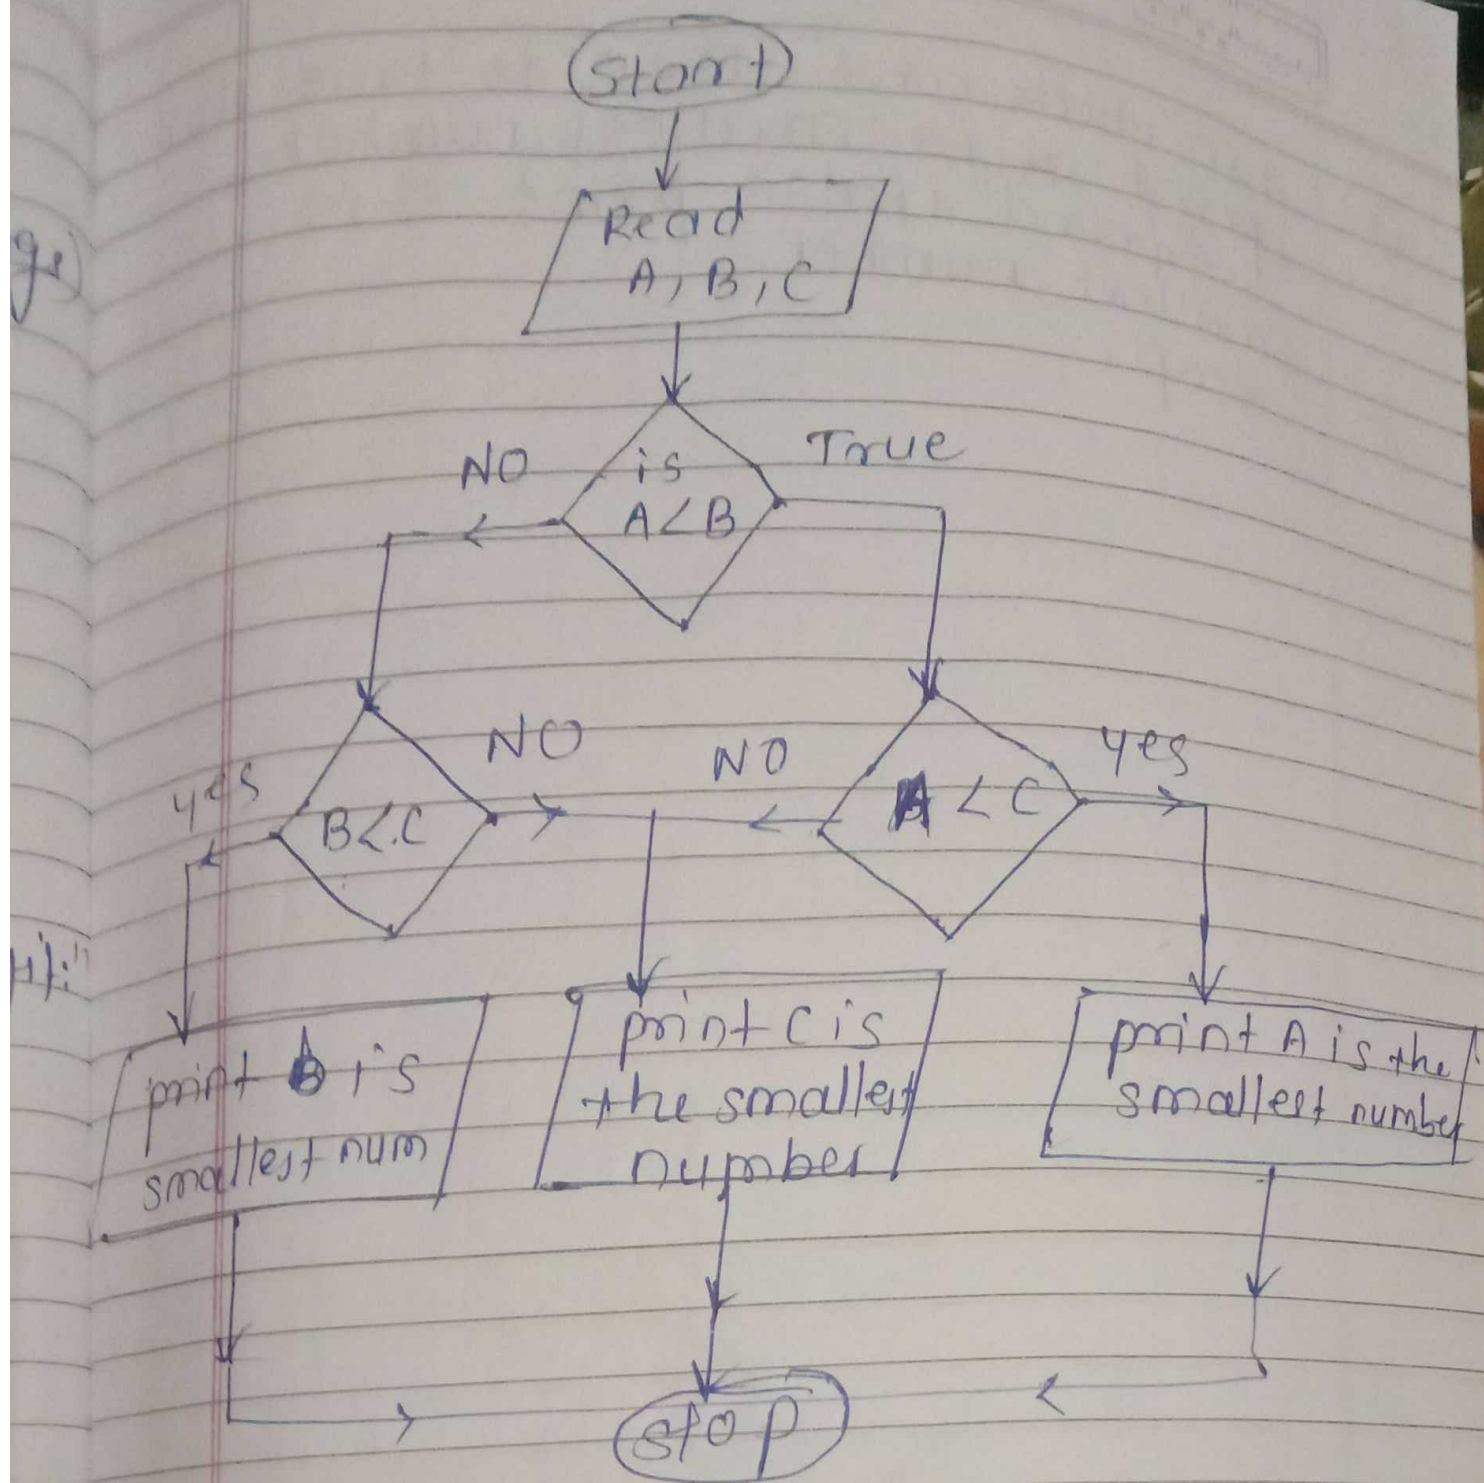 Start
Read
A, B, C
NO
True
is
A<B
yes
NO
NO
yes
B<.C
A < C
print B is
smallest num
print C is
the smallest
number
print A is the
smallest number
stop